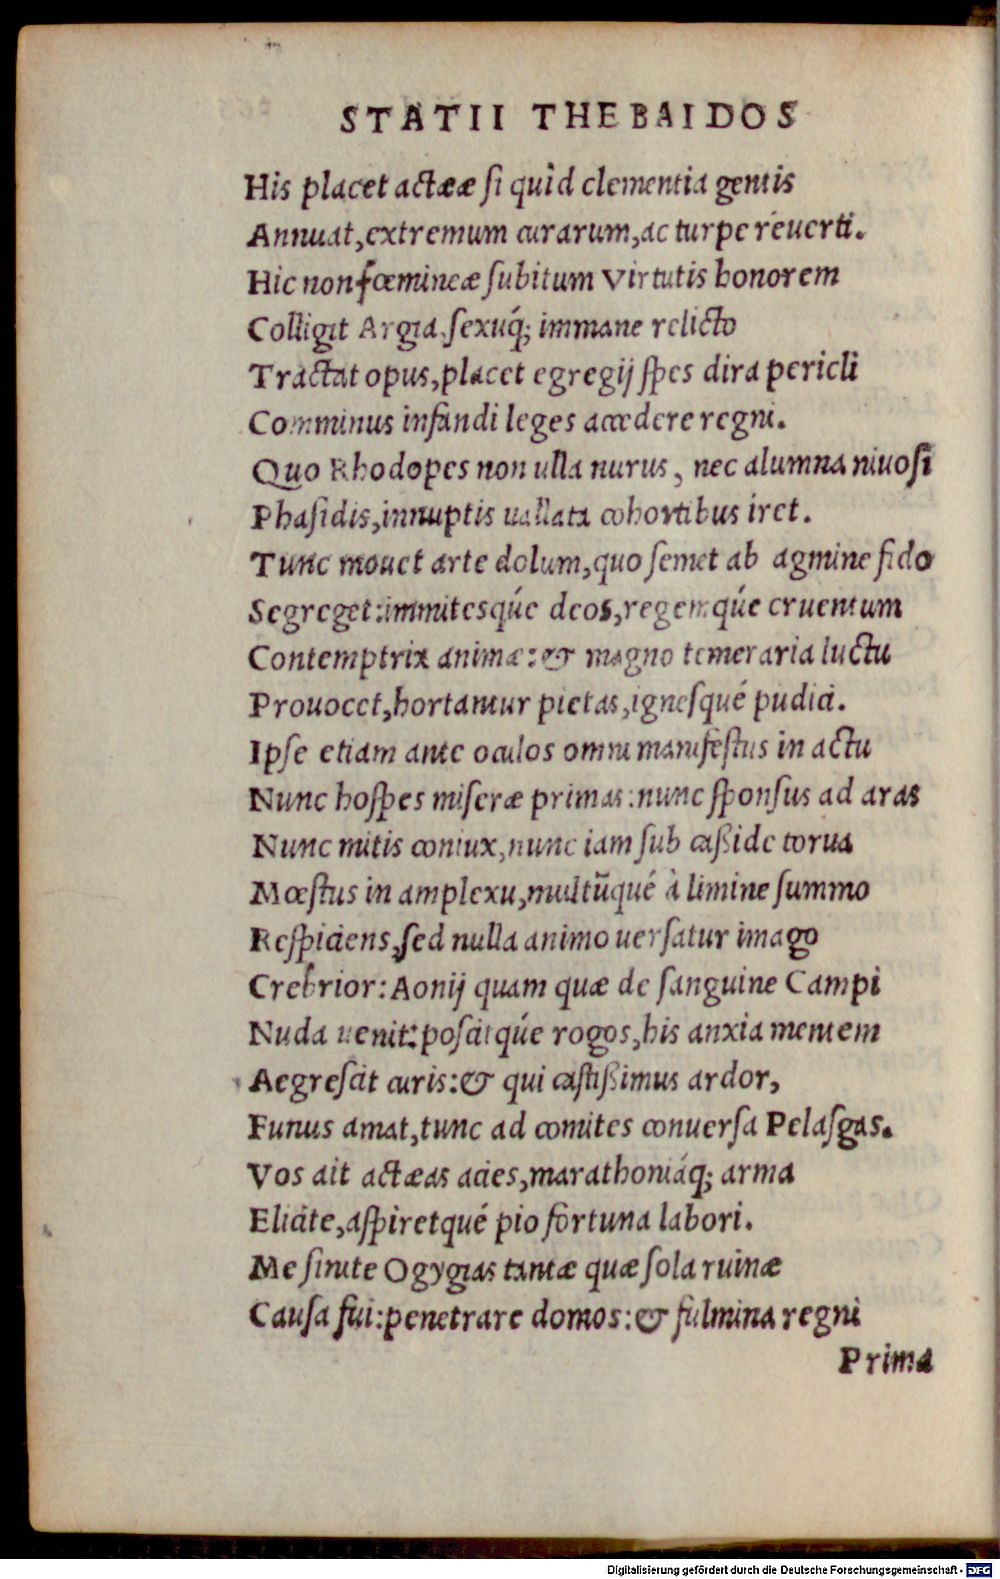 STATII THEBAIDOS
His placet actææ si quid clementia gentis
Annuat,extremum curarum,ac turpe reuerti.
Hic non fœmineæ subitum virtutis honorem
Colligit Argia,sexuq́; immane relicto
Tractat opus,placet egregij spes dira pericli
Comminus infandi leges accedere regni.
Quo Rhodopes non ulla nurus, nec alumna niuosi
Phasidis,innuptis uallata cohortibus iret.
Tunc mouet arte dolum,quo semet ab agmine fido
Segreget:immitesqúe deos,regemqúe cruentum
Contemptrix animæ:& magno temeraria luctu
Prouocet,hortantur pietas,ignesqué pudici.
Ipse etiam ante oculos omni manifestus in actu
Nunc hospes miseræ primas:nunc sponsus ad aras
Nunc mitis coniux,nunc iam sub caßide torua
Mœstus in amplexu,multũqué à limine summo
Respiciens,sed nulla animo uersatur imago
Crebrior:Aonij quam quæ de sanguine Campi
Nuda uenit:poscitqúe rogos,his anxia mentem
Aegrescit curis:& qui castißimus ardor,
Funus amat,tunc ad comites conuersa Pelasgas.
Vos ait actæas acies,marathoniáq; arma
Elicite,aspiretqué pio fortuna labori.
Me sinite Ogygias tantæ quæ sola ruinæ
Causa fui:penetrare domos:& fulmina regni
Prima
Digitalisierung gefördert durch die Deutsche Forschungsgemeinschaft - DFG